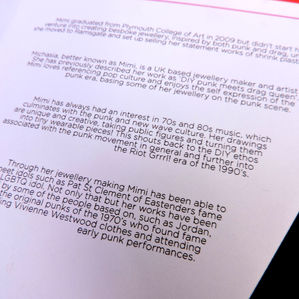 Mimi graduated from Plymouth College of Art in 2009 but didn't start
venture into creating bespoke jewellery, inspired by both punk and drag, un
she moved to Ramsgate and set up selling her statement works of shrink plasti
Michaela, better known as Mimi, is a UK based jewellery maker and artist
She has previously described her work as 'DIY punk meets drag queen'
Mimi loves referencing pop culture and enjoys the self expression of the
punk era, basing some of her jewellery on the punk scene.
Mimi has always had an interest in 70s and 80s music, which
culminates with the punk and new wave culture. Her drawings
are unique and creative, taking public figures and turning them
into tiny wearable pieces! This shouts back to the DIY ethos
associated with the punk movement in general and further into
the Riot Grrrl era of the 1990's.
Through her jewellery making Mimi has been able to
meet idols such as Pat St Clement of Eastenders fame
LGBTQ idol. Not only that but her works have been
by some of the people based on, such as Jordan,
the original punks of the 1970's who found fame
ing Vivienne Westwood clothes and attending
early punk performances.